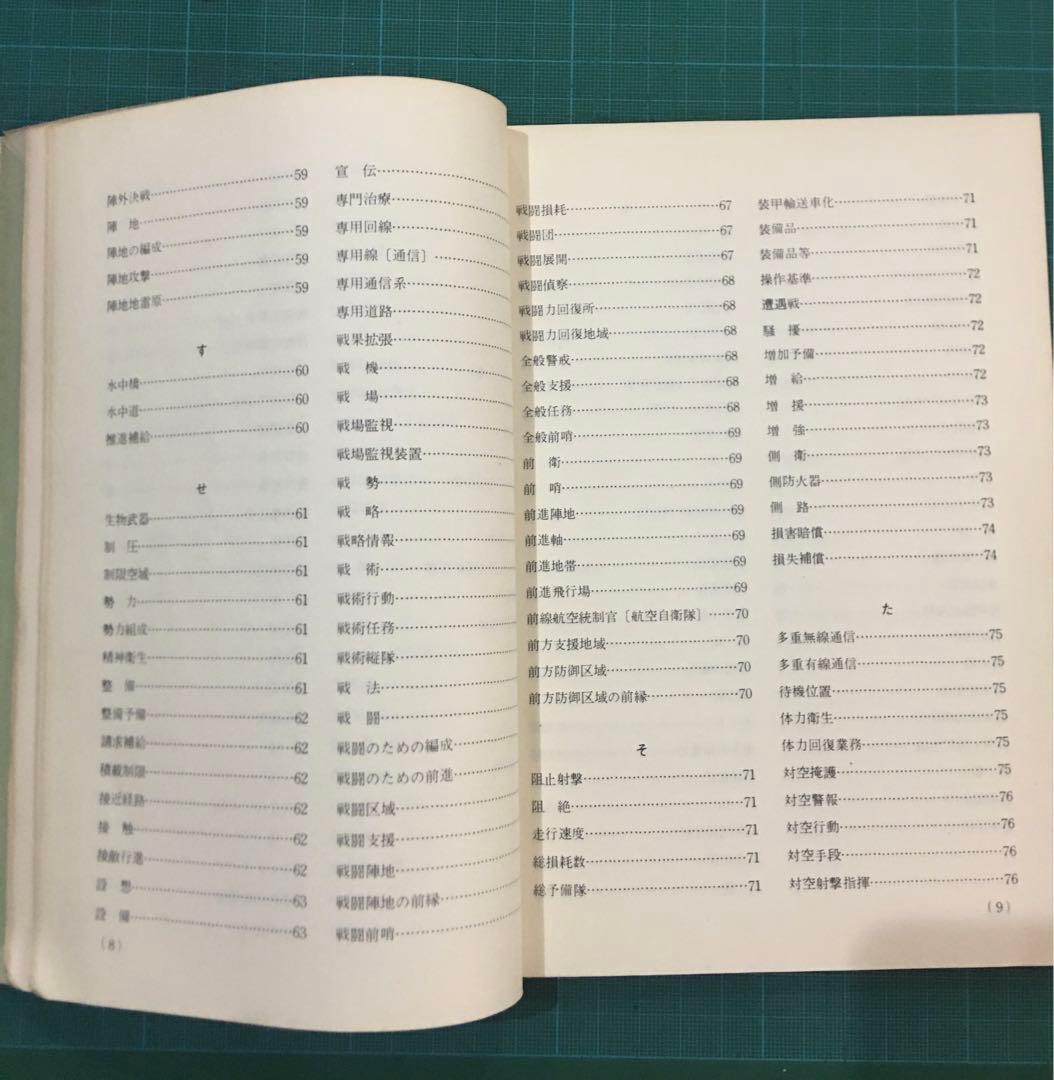 陣外決戦……59
陣　地……59
陣地の編成……59
陣地攻撃……59
陣地地雷原……59
す
水中橋……60
水中道……60
推進補給……60
せ
生物武器……61
制　圧……61
制限空域……61
勢　力……61
勢力組成……61
精神衛生……61
整　備……61
整備予備……62
請求補給……62
積載制限……62
接近経路……62
接　触……62
接敵行進……62
設　想……63
設　備……63
(8)
宣　伝……
専門治療……
専用回線……
専用線〔通信〕……
専用通信系……
専用道路……
戦果拡張……
戦　機……
戦　場……
戦場監視……
戦場監視装置……
戦　勢……
戦　略……
戦略情報……
戦　術……
戦術行動……
戦術任務……
戦術縦隊……
戦　法……
戦　闘……
戦闘のための編成……
戦闘のための前進……
戦闘区域……
戦闘支援……
戦闘陣地……
戦闘陣地の前縁……
戦闘前哨……
戦闘損耗……67
戦闘団……67
戦闘展開……67
戦闘偵察……68
戦闘力回復所……68
戦闘力回復地域……68
全般警戒……68
全般支援……68
全般任務……68
全般前哨……69
前　衛……69
前　哨……69
前進陣地……69
前進軸……69
前進地帯……69
前進飛行場……69
前線航空統制官〔航空自衛隊〕……70
前方支援地域……70
前方防御区域……70
前方防御区域の前縁……70
そ
阻止射撃……71
阻　絶……71
走行速度……71
総損耗数……71
総予備隊……71
装甲輸送車化……71
装備品……71
装備品等……71
操作基準……72
遭遇戦……72
騒　擾……72
増加予備……72
増　給……72
増　援……73
増　強……73
側　衛……73
側防火器……73
側　路……73
損害賠償……74
損失補償……74
た
多重無線通信……75
多重有線通信……75
待機位置……75
体力衛生……75
体力回復業務……75
対空掩護……75
対空警報……76
対空行動……76
対空手段……76
対空射撃指揮……76
(9)